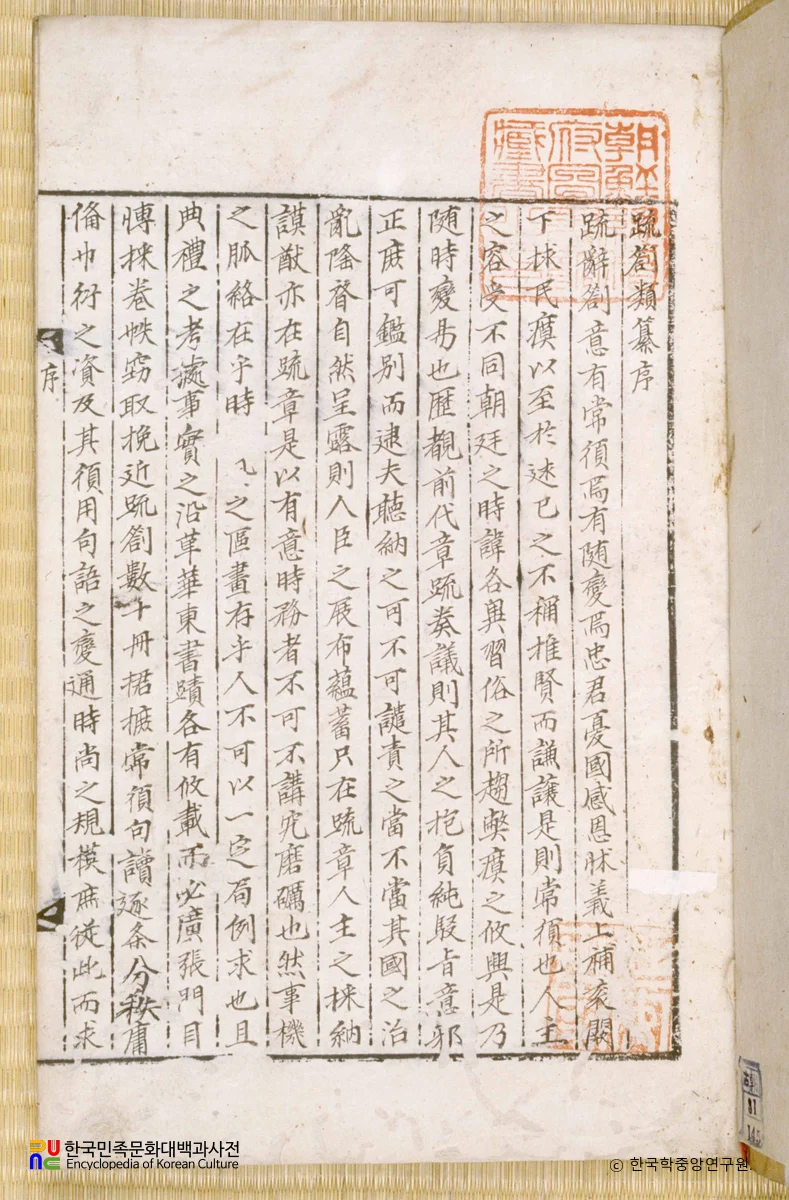 疏劄類纂序
疏辭劄意有常須焉有随變焉忠君憂國感恩怵義上補衮闕
下捄民瘼以至於述己之不稱推賢而謙讓是則常須也人主
之容受不同朝廷之時諱各異習俗之所趨弊瘼之攸興是乃
随時變易也歷觀前代章疏奏議則其人之抱負純駁旨意邪
正庶可鑑别而逮夫聽納之可不可譴責之當不當其國之治
亂隆替自然呈露則人臣之展布蘊蓄只在疏章人主之採納
謨猷亦在疏章是以有意時務者不可不講究磨礪也然事機
之脈絡在乎時 之區畫存乎人不可以一定局例求也且
典禮之考據事實之沿革華東書蹟各有攸載而必廣張門目
博採卷帙竊取挽近疏劄數十冊捃摭常須句讀逐条分秩庸
備巾衍之資及其須用句語之變通時尚之規模庶從此而求
序
朝鮮
府圖
藏書
한국민족문화대백과사전
Encyclopedia of Korean Culture
© 한국학중앙연구원